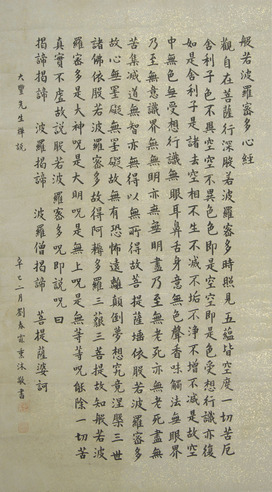 般若波羅蜜多心經
觀自在菩薩行深般若波羅蜜多時照見五蘊皆空度一切苦厄
舍利子色不異空空不異色色即是空空即是色受想行識亦復
如是舍利子是諸法空相不生不滅不垢不淨不增不減是故空
中無色無受想行識無眼耳鼻舌身意無色聲香味觸法無眼界
乃至無意識界無無明亦無無明盡乃至無老死亦無老死盡無
苦集滅道無智亦無得以無所得故菩提薩埵依般若波羅蜜多
故心無罣礙無罣礙故無有恐怖遠離顛倒夢想究竟涅槃三世
諸佛依般若波羅蜜多故得阿耨多羅三藐三菩提故知般若波
羅蜜多是大神咒是大明咒是無上咒是無等等咒能除一切苦
真實不虛故說般若波羅蜜多咒即說咒曰
揭諦揭諦 波羅揭諦 波羅僧揭諦 菩提薩婆訶
大豐先生 說
二月劉春霖熏沐敬書